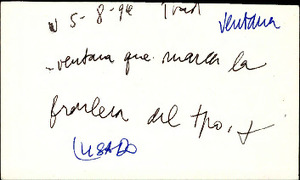 v 5-8-94 Trad ventana
-ventana que marca la
frontera del tpo, +
(USADO